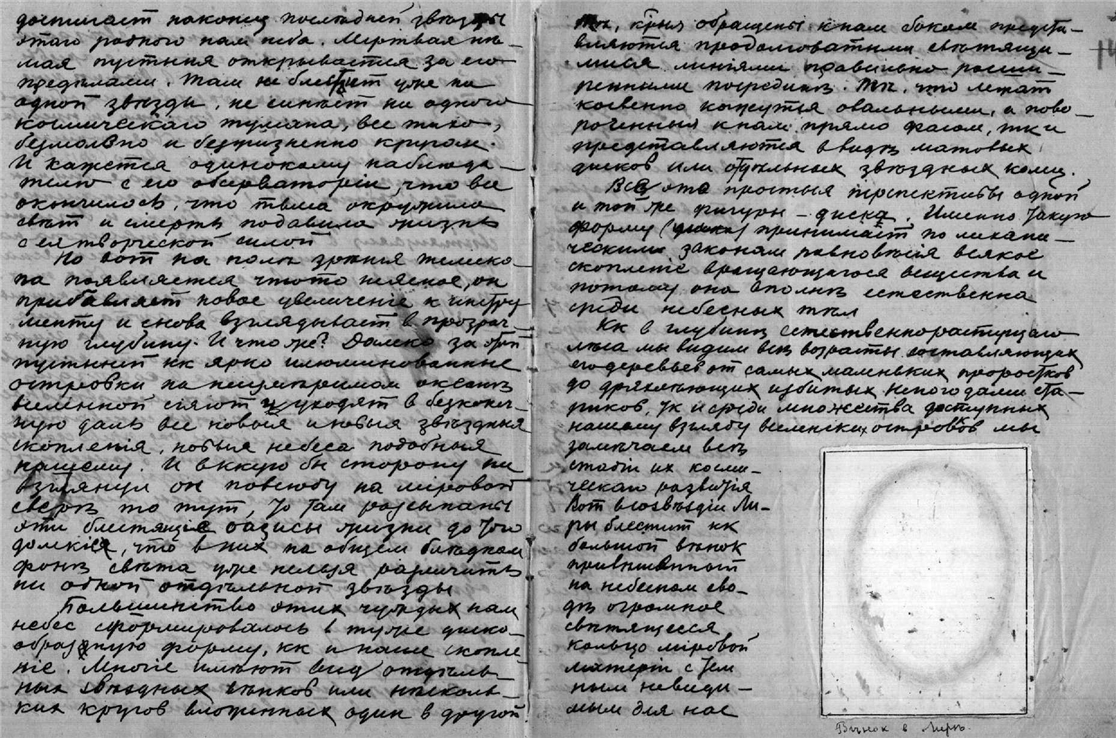 достигает наконец последней звѣзды
этого родного нам неба. Мертвая нѣ-
мая пустыня открывается за его
предѣлами. Там не блещет уже ни
одной звѣзды, не сіяет ни одного
космическаго тумана, все тихо,
безмолвно и безжизненно кругом.
И кажется одинокому наблюда-
телю с его обсерваторіи, что все
окончилось, что тьма окружила
свѣт и смерть подавила жизнь
с ея творческой силой
Но вот на полѣ зрѣнія телеско-
па появляется что то неясное, он
прибавляет новое увеличеніе к инстру
менту и снова взглядывает в прозрач-
ную глубину. И что же? Далеко за этой
пустыней кк ярко иллюминованные
островки на неизмѣримом океанѣ
вселенной сіяют и уходят в безконеч-
ную даль все новыя и новыя звѣздныя
скопленія, новыя небеса подобныя
нашему. И в ккую бы сторону ни
взглянул он повсюду на міровой
сферѣ то тут, то там разсѣяны
эти блестящіе оазисы жизни до того
далекіе, что в них на общем блѣдном
фонѣ свѣта уже нельзя различить
ни одной отдѣльной звѣзды
Большинство этих чуждых нам
небес сформировалось в ту же диско-
образную форму, кк и наше скопле
ніе. Многіе имѣют вид отдѣль-
ных звѣздных вѣнков или нѣсколь-
ких кругов вложенных один в другой
Тѣ, крые обращены к нам боком предста-
вляются продолговатыми свѣтящи-
мися линіями правильно расши-
ренными посрединѣ. Тѣ, что лежат
косвенно кажутся овальными, а пово-
роченныя к нам прямо фасом, тки
представляются в видѣ матовых
дисков или отдѣльных звѣздных колец.
Все это простыя перспективы одной
и той же фигуры – диска. Именно такую
форму (диска) принимает по механи-
ческим законам равновѣсія всякое
скопленіе вращающагося вещества и
потому она вполнѣ естественна
среди небесных тѣл
Кк в глубинѣ естественнорастущаго
лѣса мы видим всѣ возрасты составляющих
его деревьев от самых маленьких проростков
до дряхлѣющих избитых непогодами ста-
риков, тк и среди множества доступных
нашему взгляду вселенских островов мы
замѣчаем всѣ
стадіи их косми-
ческаго развитія
Вот в созвѣздіи Ли-
ры блестит кк
большой вѣнок
привѣшенный
на небесном сво-
дѣ огромное
свѣтящееся
кольцо міровой
матеріи с тем
ным невиди-
мым для нас
Вѣнок в Лирѣ.